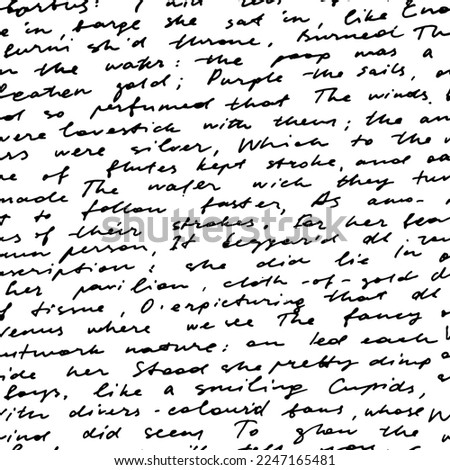 e in, barge she sat in, like
furni sh'd throne, Burned Th
n the water: the poop was a
eaten gold; Purple the sails,
d so perfumed that The winds
were lovestick with them; the
rs were silver, Which to the
e of flutes kept stroke, and oa
made The water wich they
t to follow faster, As amo
us of their strokes, for her
person, It beggar'd all
scription: she did lie in
her pavilion, cloth-of-gold
f tissue, O'erpicturing that
Venus where we see The fancy
utwork nature: on
ide her Stood she pretty dimp
boys, like a smiling Cupids,
with divers-colour'd fans, whose W
ind did seem To glow the
shutterstock.com · 2247165481